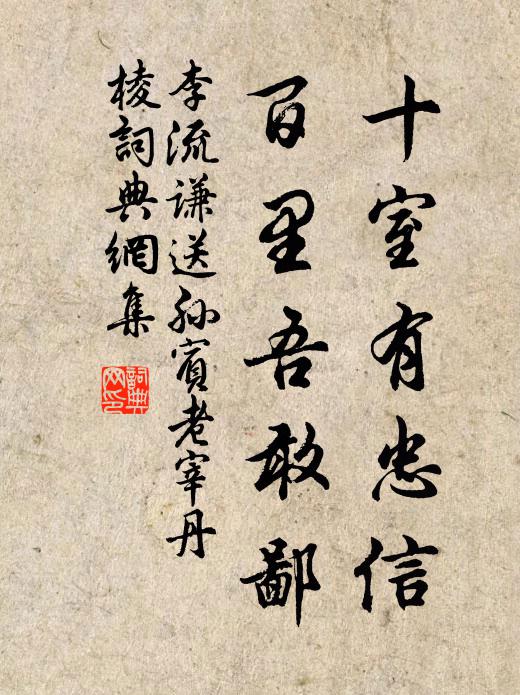 十室有忠信
百里吾敢鄙
李流謙送孫賓老宰丹
棱詞典網集
詞典
网印